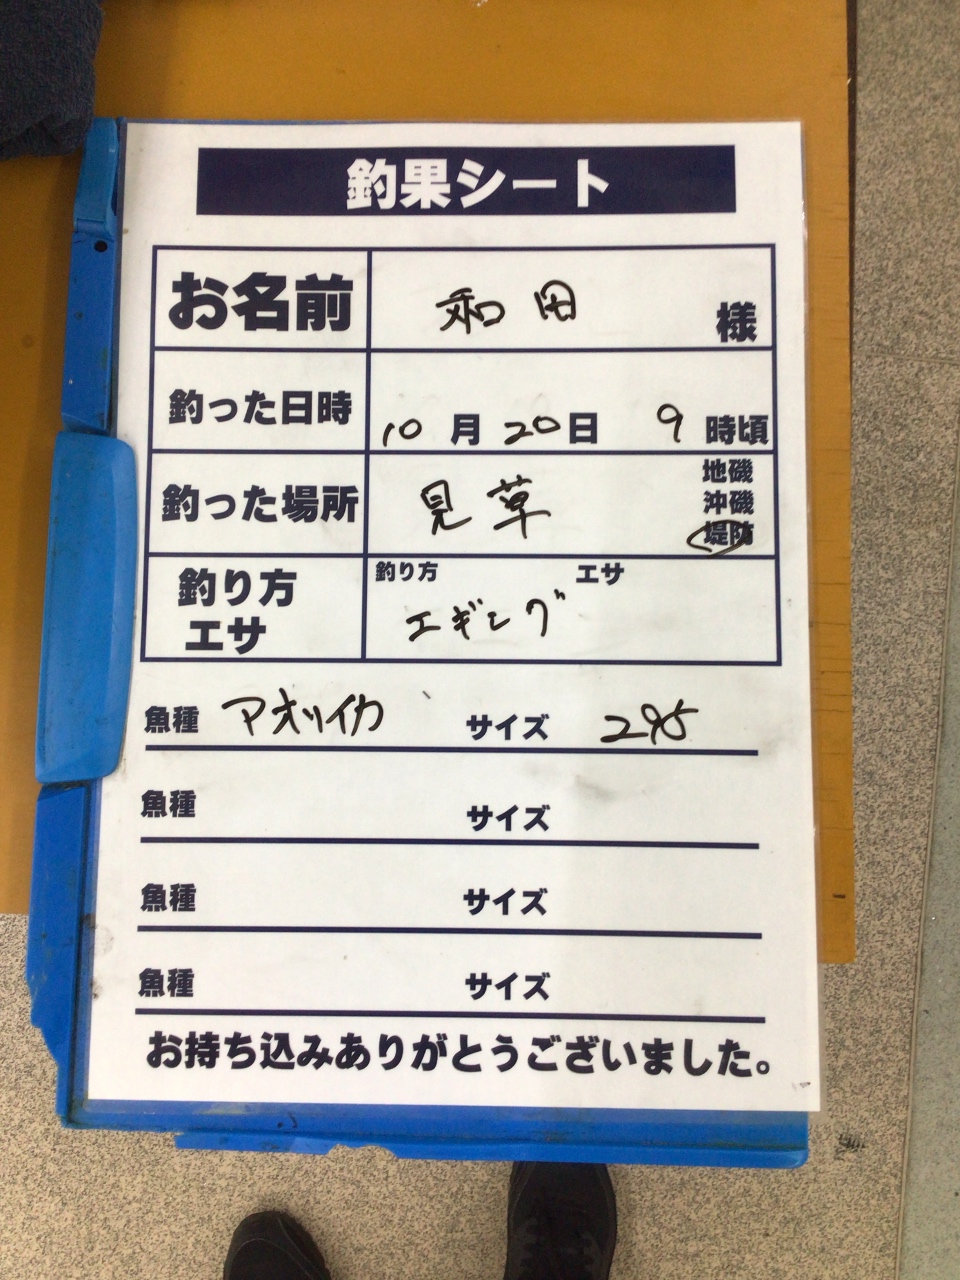 釣果シート
お名前 和田 様
釣った日時 10月20日 9時頃
釣った場所 見草 地磯
沖磯
堤防
釣り方 エサ
釣り方 エサ
エギング
魚種 アオリイカ サイズ 295
魚種 サイズ
魚種 サイズ
魚種 サイズ
お持ち込みありがとうございました。